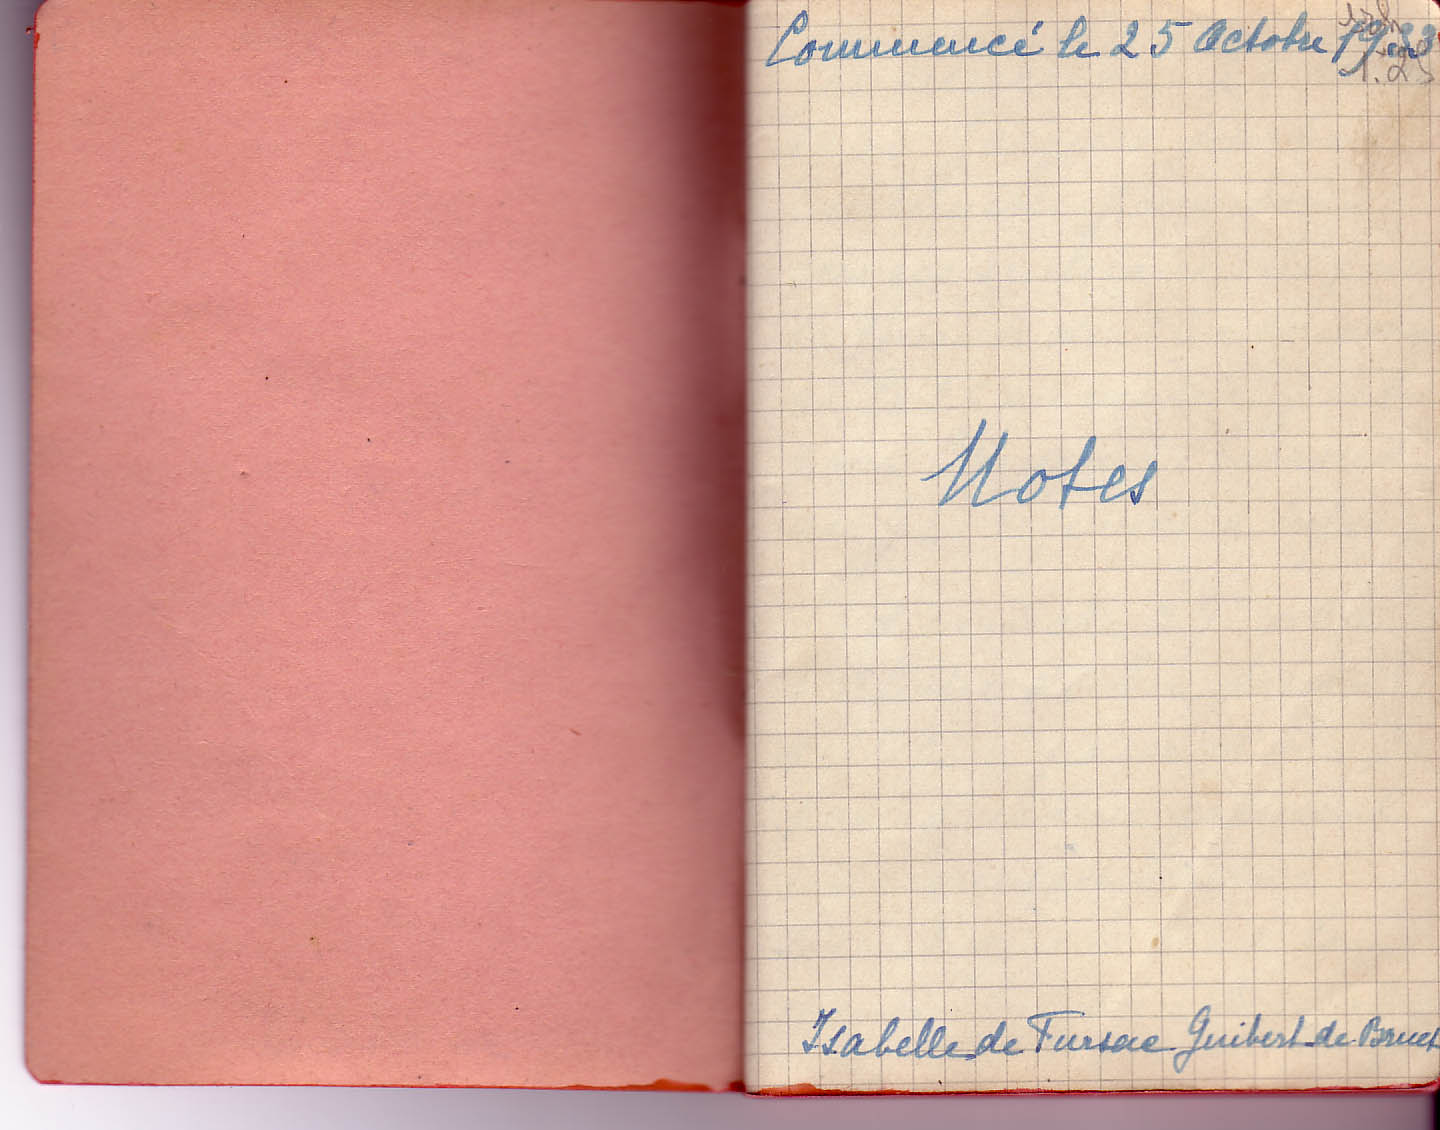 Commencé le 25 Octobre 1933
Notes
Isabelle de Fursac Guibert de Bruet